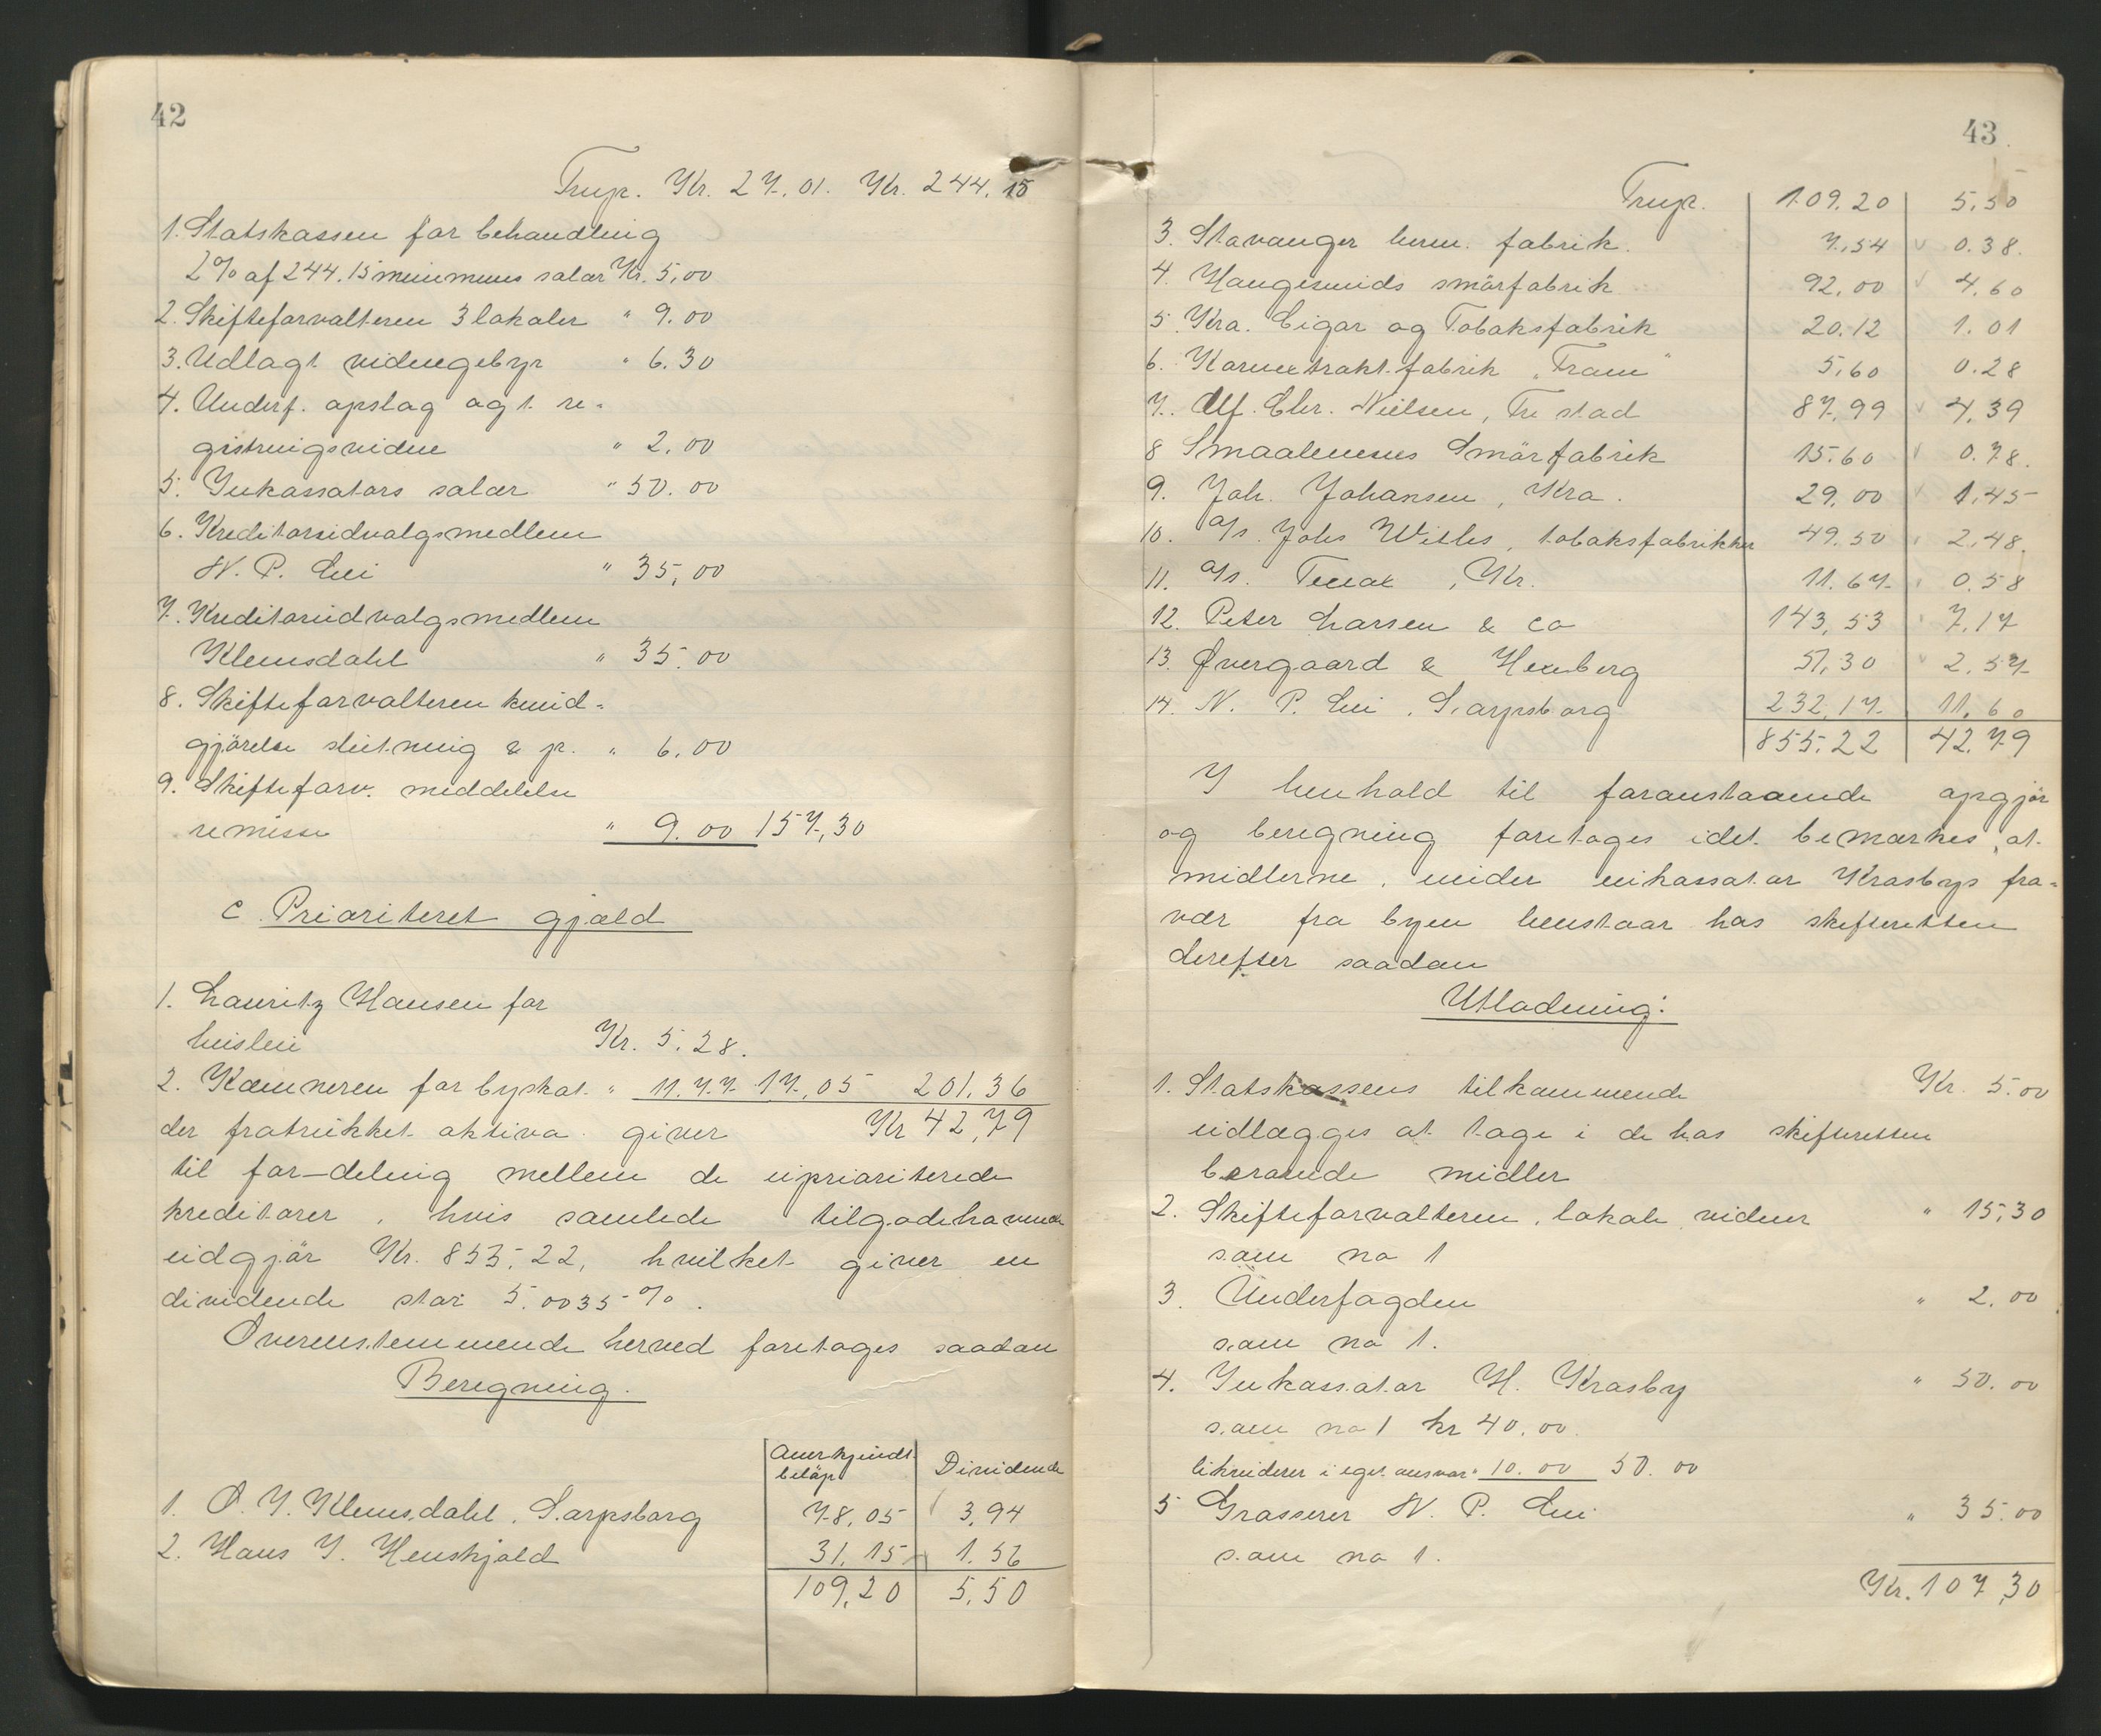 42
Trnp. Kr. 27.01. Kr. 244.15
1. Statskassen for behandling
2% af 244.15 minimums salær Kr. 5,00
2. Skifteforvalteren 3 lokaler " 9.00
3. Udlagt vidnegebyr " 6.30
4. Underf. opslag og 1 re-
gistringsvidne " 2.00
5. Inkassators salær " 50.00
6. Kreditorudvalgsmedlem
N. P. Lie " 35,00
7. Kreditorudvalgsmedlem
Klemsdahl " 35.00
8. Skifteforvalteren kund-
gjörelse slutning & p. " 6.00
9. Skifteforv. meddelelse
remisse " 9.00 157,30
C. Prioriteret gjæld
1. Lauritz Hansen for
husleie Kr. 5.28.
2. Kæmneren for byskat " 11.77 17,05 201,36
der fratrukket aktiva giver Kr 42,79
til for-deling mellem de upriioriterede
kreditorer, hvis samlede tilgodehavende
udgjör Kr. 855,22, hvilket giver en
dividende stor 5.0035 %.
Overensstemmende herved foretages saadan
Beregning.
Anerkjendt
beløp Dividende
1. O. J. Klemsdahl, Sarpsborg 78,05 3,94
2. Hans J. Henskjold 31,15 1.56
109,20 5,50
43
Trnp. 109.20 5,50
3. Stavanger herm. fabrik. 7,54 0.38.
4. Haugesunds smörfabrik 92,00 4,60
5. Kra. Cigar og Tobaksfabrik 20.12 1.01
6. Kornextrakt-fabrik "Fram" 5,60 0.28
7. Alf. Chr. Nielsen, Fr stad 87.99 4,39
8 Smaalenenes Smörfabrik 15.60 0.78.
9. Joh. Johansen, Kra. 29.00 1,45
10. A/s. Johs Withs, tobaksfabrikker 49.50 2,48.
11. A/s. Tenax, Kr. 11.67 0.58
12. Peter Larsen & Co 143,53 7,17
13. Øvergaard & Hexeberg 51,30 2,57
14. N. P. Lie, Sarpsborg 232,17 11,60
855.22 42.79
I henhold til foranstaaende opgjör
og beregning foretages idet bemærkes, at
midlerne, under inkassator Krasbys fra-
vær fra byen henstaar hos skifteretten
derefter saadan
Utlodning:
1. Statskassens tilkommende Kr. 5.00
udlægges at tage i de hos skifteretten
beroende midler
2. Skifteforvalteren, lokale vidner " 15,30
som no 1
3. Underfogden " 2.00
som no 1.
4. Inkassator H. Krasby " 50.00
som no 1 kr 40.00.
likviderer i eget ansvar " 10.00 50.00
5 Grosserer N. P. Lie " 35.00
som no 1.
Kr. 107,30